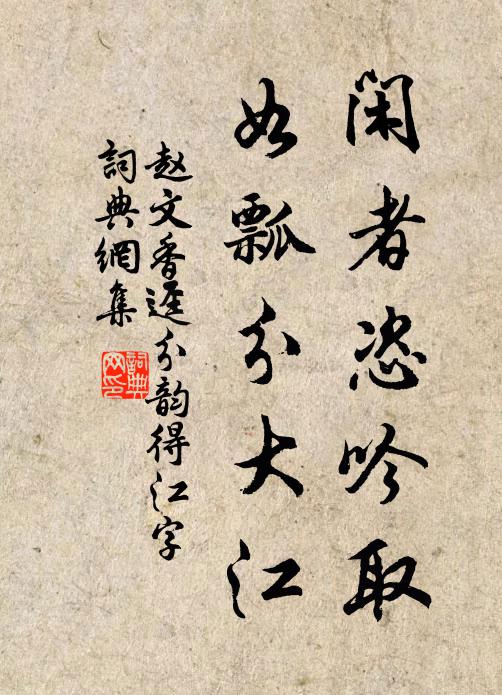 闲者恣吟取
如瓢分大江
赵文香迳分韵得江字
詞典網集
詞典
网印